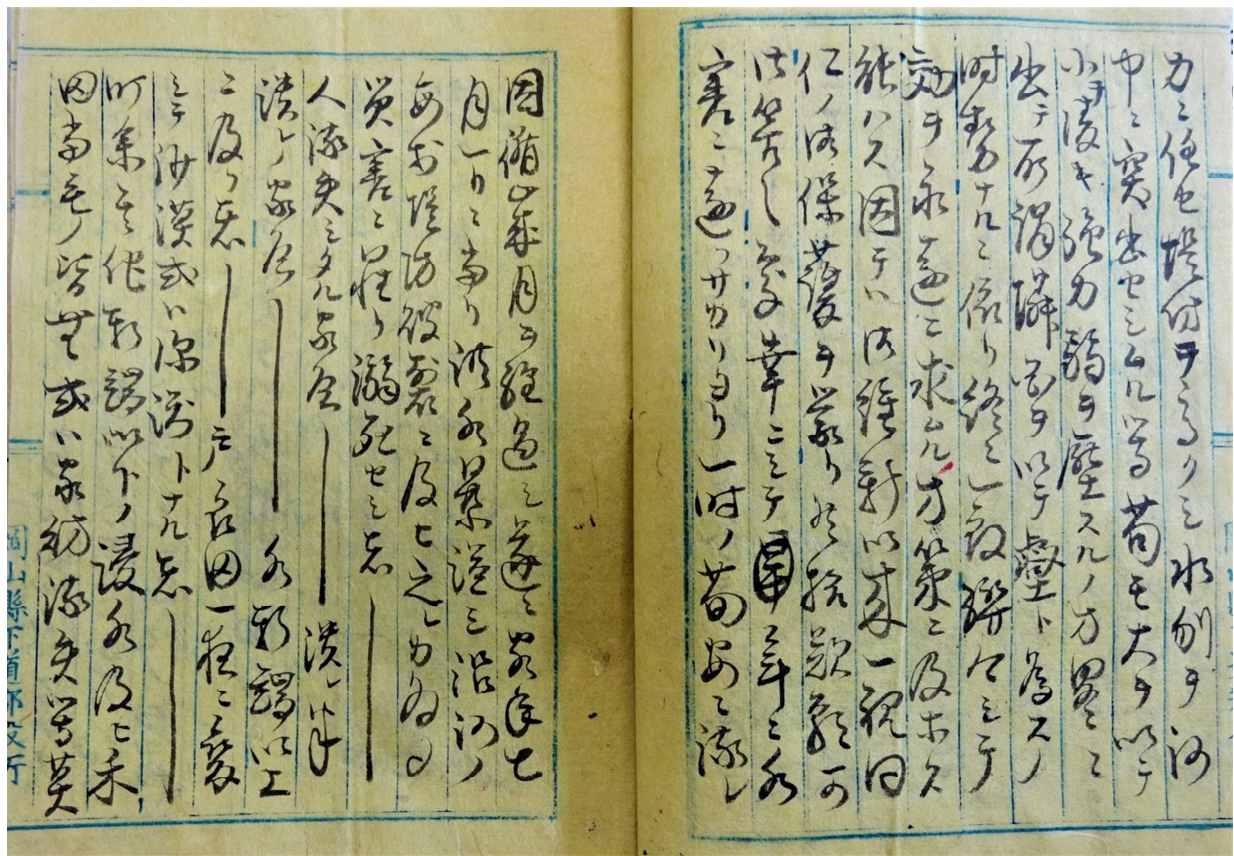 力ニ任セ堤防ヲ高クシ水刎ヲ河
中ニ突出セシムル等苟モ大ヲ以テ
小ヲ凌キ強力弱ヲ壓スルノ方略ニ
出テ所謂隣国ヲ以テ壑ト為スノ
時勢ナルニ依リ終ニ一致聯合シテ
効ヲ永遠ニ求ムル方策ニ及ホス
能ハス因テハ御維新以来一視同
仁ノ御保護ヲ蒙リ
幸ニシテ ニ水
害ニ遭ッサカリヨリ一時ノ苟安ニ流レ
因循歳月ヲ経過シ遂ニ客年七
月一日ニ当リ洪水暴溢シ沿河ノ
毎村堤防破裂ニ及ヒ之レカ為メ
災害ニ罹リ溺死セシ者
人流失シタル家屋 潰レ
潰レノ家屋 水軒端以上
ニ及フ者 戸良田一夜ニ変
シテ沙漠或ハ深淵トナル者
町余其他軒端以下ノ浸水及ヒ禾
田畜毛ノ皆無或ハ家財流失等莫
岡山縣下道郡役所